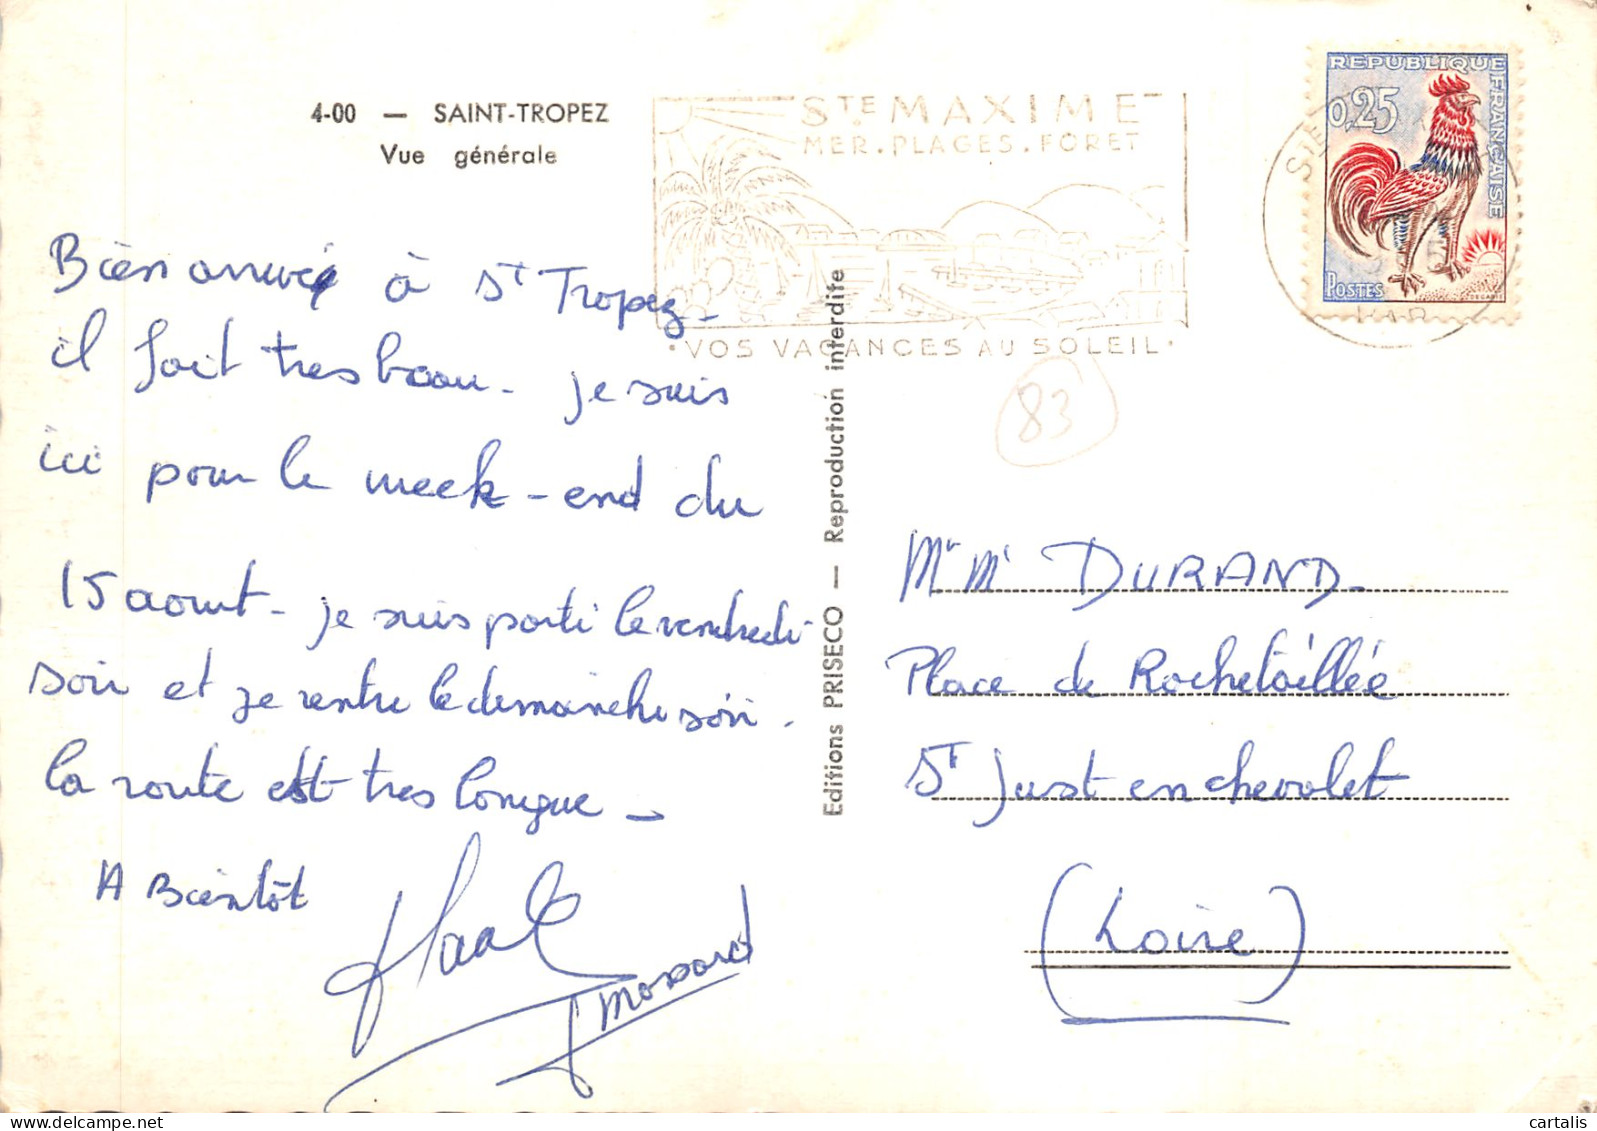 4-00 — SAINT-TROPEZ
Vue générale
STE MAXIME
MER. PLAGES. FORET
• VOS VACANCES AU SOLEIL •
REPUBLIQUE FRANÇAISE
0,25
POSTES
VAR
83
Bien arrivé à St Tropez -
il fait tres beau - je suis
ici pour le week-end du
15 aout - je suis parti le vendredi
soir et je rentre le dimanche soir -
la route est tres longue -
A Bientôt
Editions PRISECO — Reproduction interdite
Mr Mm DURAND -
Place de Rochetaillée
St Just en chevalet
(Loire)
cartalis